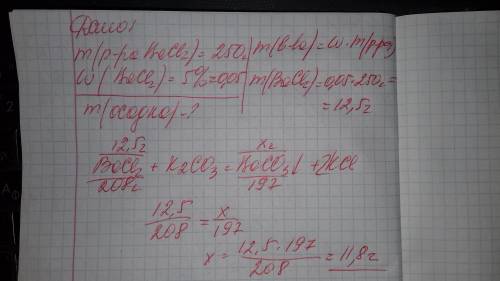 Дано:
m(р-ра BaCl₂) = 250г
W(BaCl₂) = 5% = 0,05
m(осадка) - ?
m(в-ва) = w · m(р-ра)
m(BaCl₂) = 0,05 · 250г =
= 12,5г
12,5г xг
BaCl₂ + K₂CO₃ = BaCO₃↓ + 2KCl
208г 197
12,5/208 = x/197
x = 12,5 · 197/208 = 11,8г